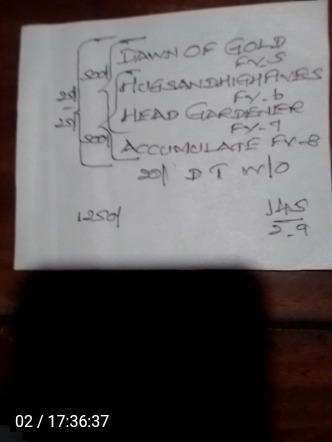 DAWN OF GOLD
FV-5
HUGSANDHIGHFIVES
FV-6
HEAD GARDENER
FV-7
ACCUMULATE FV-8
500/
500/
25/
25/
20/ D T W/O
1250/
145
2-9
02 / 17:36:37